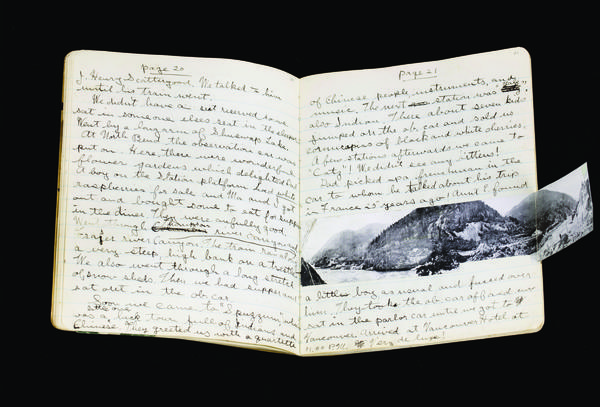 page 20
J. Henry Scattergood. We talked to him
until his train went.
We didn't have a set reserved so we
sat in someone elses seat in the
Went by a long arm of Shuswap Lake.
At North Bend the observation car was
put on. Here, there were wonderful
flower gardens, which delighted
A boy on the station platform had white
raspberries for sale and Ma and I got
out and bought some to eat for supper
in the diner. They were awfully good.
Went through river canyon and
Fraser river canyon. The train ran along
a very steep, high bank on a trestle
We also went through a long stretch
of snow sheds. Then we had supper and
sat out in the ob. car.
Soon we came to "Spuzzum," which
was a little town full of Indians and
Chinese. They greeted us with a quartette
page 21
of Chinese people, instruments, and
music. The next station was
also Indian. There about seven kids
jumped on the ob. car and sold us
cornucopias of black and white cherries.
A few stations afterwards we came to
"Katz"! We didn't see any kittens!
Dad picked up a frenchman in the
car to whom he talked about his trip
in France 25 years ago! Aunt E. found
a little boy as usual and fussed over
him. They took the ob. car off and we
sat in the parlor car until we got to
Vancouver. Arrived at Vancouver Hotel at
11.00 P.M. Verz de luxe!